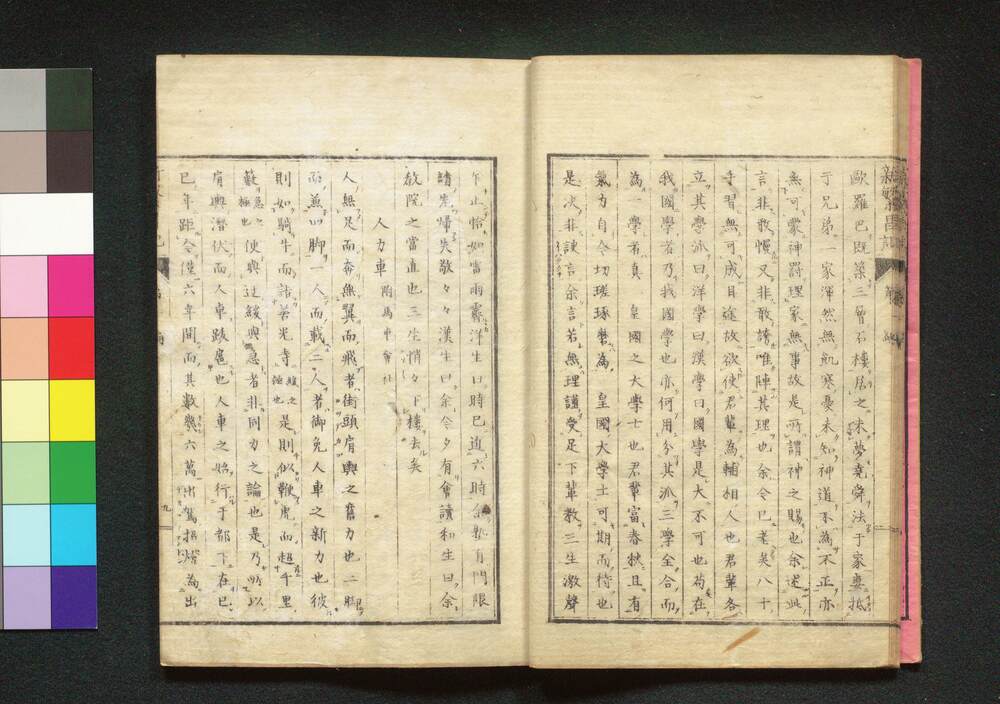 歐羅巴既築三層石樓居之未夢堯舜法于家妻抵
于兄弟一家渾然無飢寒憂未知神道不為不正亦
無可蒙神罸理家無事故是所謂神之賜也余述此
言非敢慢又非敢謗唯陣其理也余今已老矣八十
手習無可成目途故欲使君輩為輔相人也君輩各
立其學派曰洋學曰漢學曰國學是大不可也苟在
我國學者乃我國學也亦何用分其派三學全合而
為一學者真 皇國之大學士也君輩富春秋且有
氣力自今切瑳琢磨為 皇國大學士可期而待也
是决非諛言余言若無理謹受足下輩教三生激聲
乍止恰如雷雨霽洋生曰時已近六時余塾有門限
請先歸失敬々々漢生曰余今夕有會讀和生曰余
教院之當直也三生悄々下樓去矣
人力車 附馬車會社
人無足而奔無翼而飛者街頭肩輿之奮力也二脚
而兼四脚一人而載二人者御免人車之新力也彼
則如騎牛而詣善光寺緩之極也是則似鞭虎而超千里
藪急之極也使輿遅緩與急者非同力之論也是乃所以
肩輿潛伏而人車跋扈也人車之始行于都下在已
巳年距今僅六年間而其數幾六萬出駕招
為出